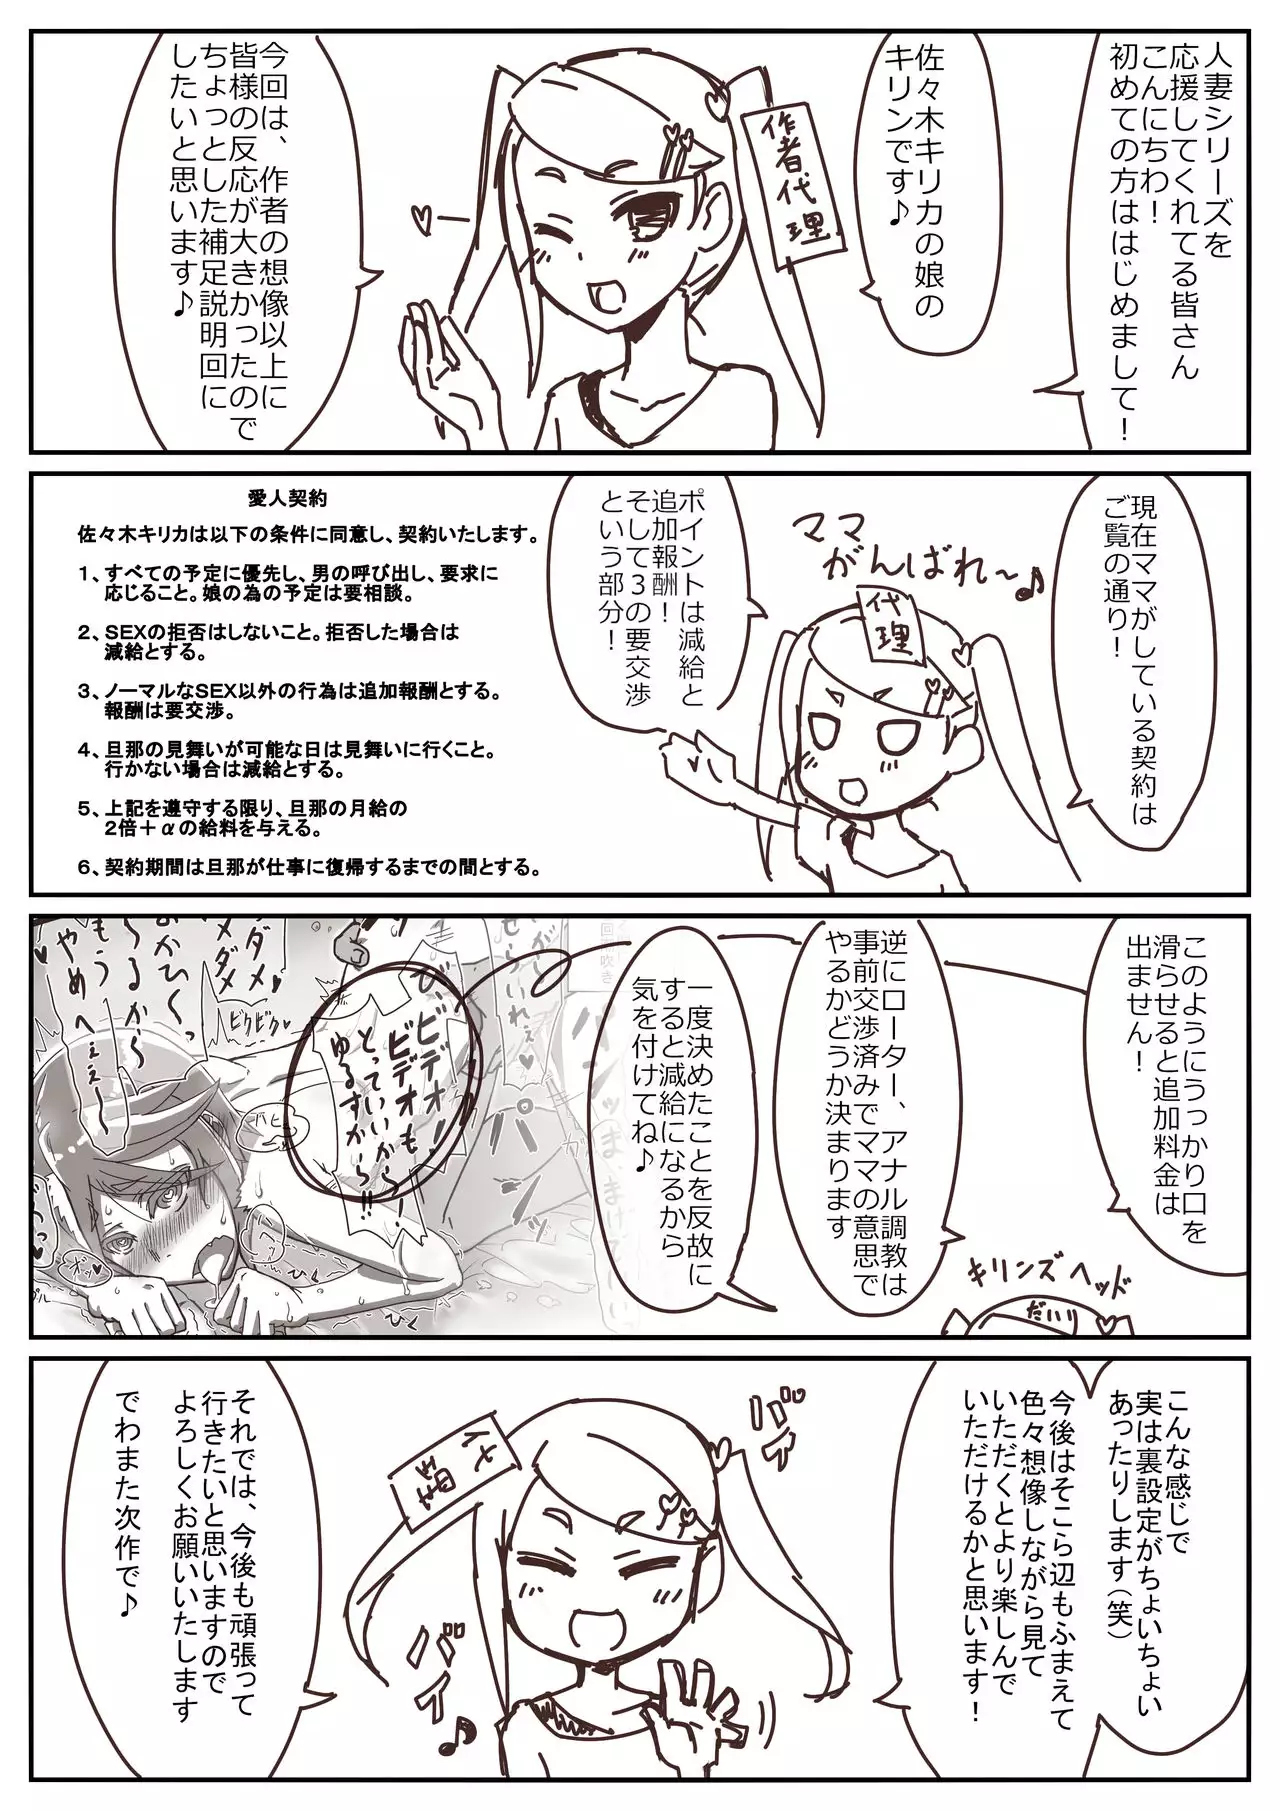 人妻シリーズを
応援してくれてる皆さん
こんにちわ！
初めての方ははじめまして！
佐々木キリカの娘の
キリンです♪
作者代理
今回は、作者の想像以上に
皆様の反応が大きかったので
ちょっとした補足説明回に
したいと思います♪
現在ママがしている契約は
ご覧の通り！
ママ
がんばれ～♪
代理
ポイントは減給と
追加報酬！
そして３の要交渉
という部分！
愛人契約
佐々木キリカは以下の条件に同意し、契約いたします。
１、すべての予定に優先し、男の呼び出し、要求に
応じること。娘の為の予定は要相談。
２、ＳＥＸの拒否はしないこと。拒否した場合は
減給とする。
３、ノーマルなＳＥＸ以外の行為は追加報酬とする。
報酬は要交渉。
４、旦那の見舞いが可能な日は見舞いに行くこと。
行かない場合は減給とする。
５、上記を遵守する限り、旦那の月給の
２倍＋αの給料を与える。
６、契約期間は旦那が仕事に復帰するまでの間とする。
このようにうっかり口を
滑らせると追加料金は
出ません！
キリンズヘッド
だいり
逆にローター、アナル調教は
事前交渉済みでママの意思で
やるかどうか決まります
一度決めたことを反故に
すると減給になるから
気を付けてね♪
び、ビデオ！
ビデオも
とっていいから！
ゆるすから！！
ダメ
ダメ
もうやめへぇぇ～
ビクビク♥
こんな感じで
実は裏設定がちょいちょい
あったりします（笑）
今後はそこら辺もふまえて
色々想像しながら見て
いただくとより楽しんで
いただけるかと思います！
バイ
バイ♪
それでは、今後も頑張って
行きたいと思いますので
よろしくお願いいたします
でわまた次作で♪